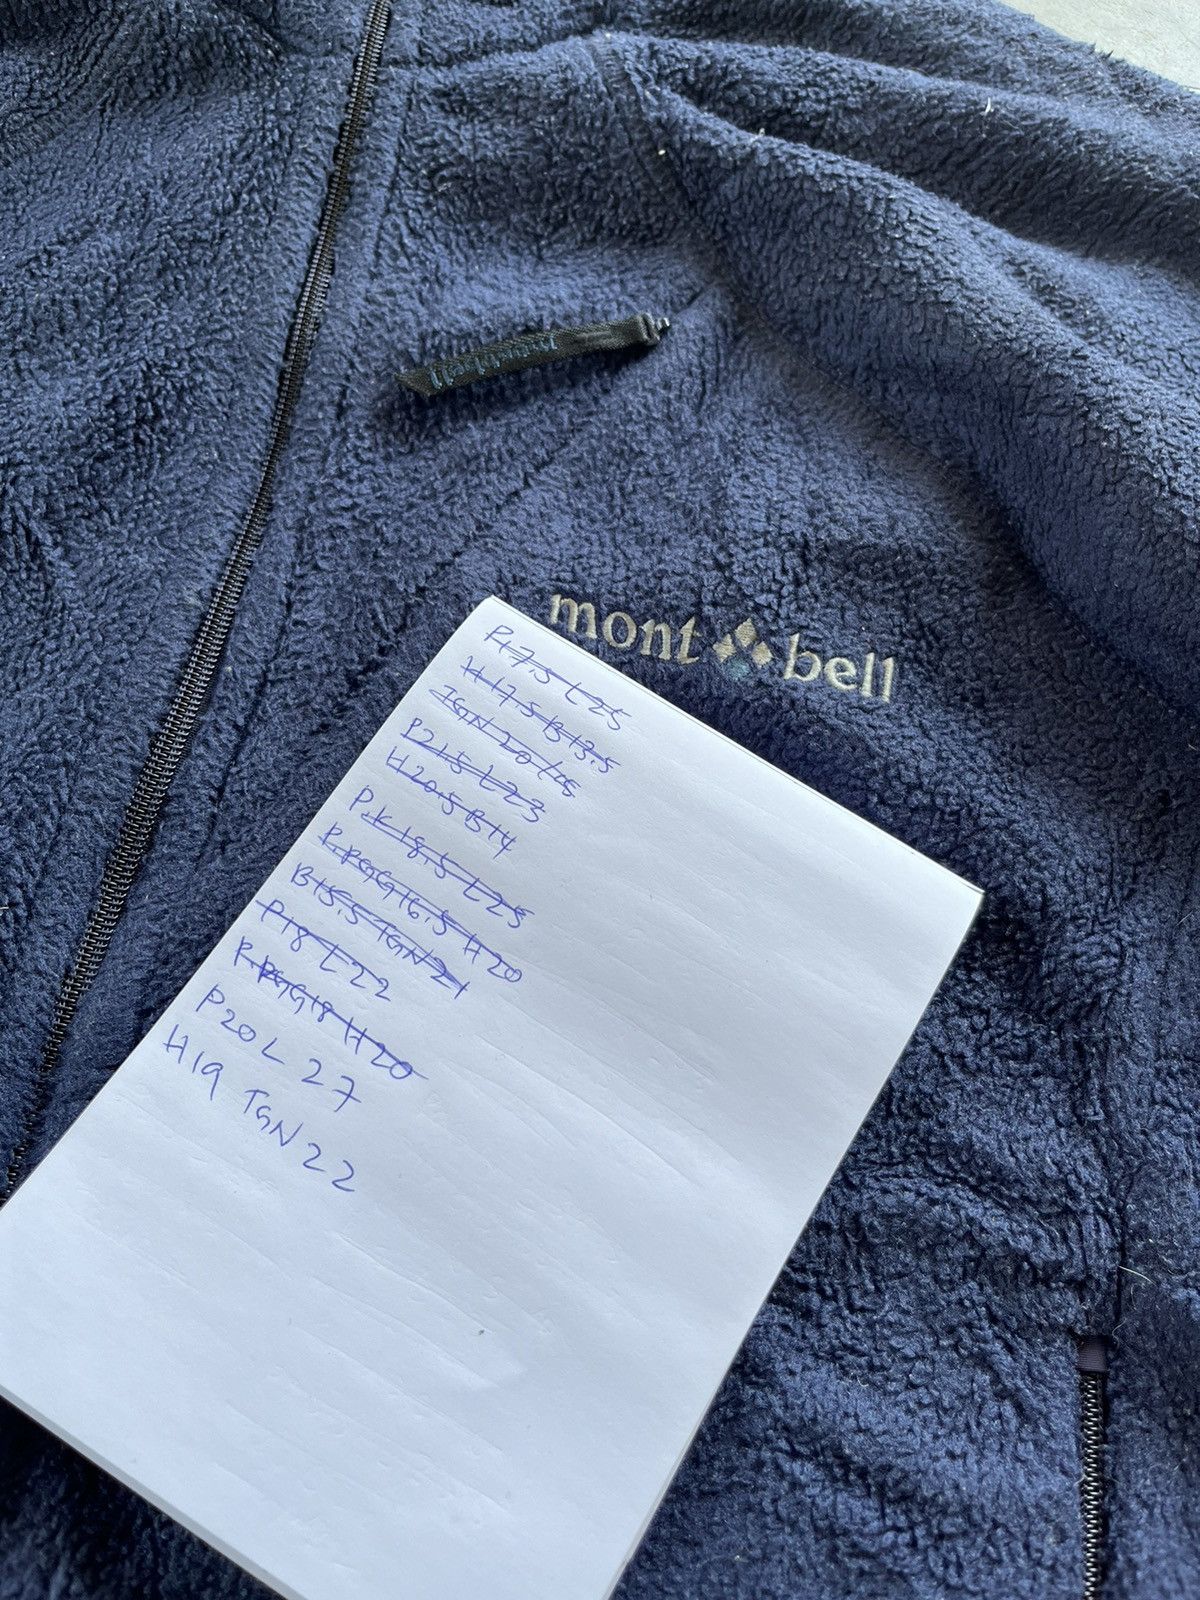 mont-bell
mont bell
P17.5 L25
H17.5 B13.5
TGN 20/45
P21.5 L23
H20.5 B14
P.K 18.5 L25
P.PGG16.5 H20
B15.5 TGN21
P18 L22
P.PGG18 H20
P20L 27
H19 TGN 22